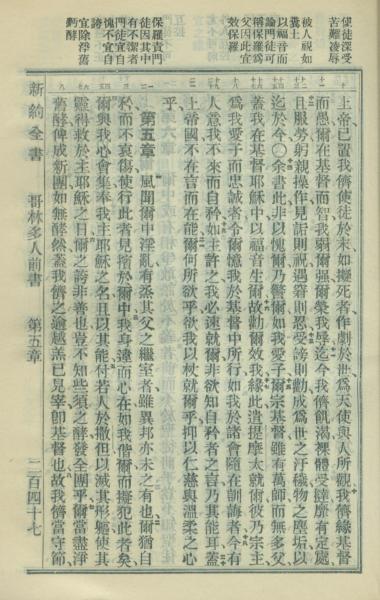 使徒深受
苦難凌辱
被人視如
糞土
以福音而
論門徒可
稱保羅爲
父因此宜
效保羅
保羅責門
徒因其中
有不潔者
門徒宜自
愧不宜自
誇
宜除淨舊
麪酵
上帝已置我儕使徒於末如擬死者作劇於世爲天使與人所觀我儕緣基督
而愚爾在基督而智我弱爾强爾榮我辱迄今我儕飢渴裸體受撻靡有定處
且服勞躬親操作見詬則祝遇窘則忍受謗則勸成爲世之汙穢物之塵垢以
迄於今○余書此非以愧爾乃警爾如我愛子爾宗基督雖有萬師而無多父
蓋我在基督耶穌中以福音生爾故勸爾效我緣此遣提摩太就爾彼乃宗主
爲我愛子而忠誠者令爾憶我於基督中所行如我於諸會隨在訓誨者今有
人意我不來而自矜如主許之我必速就爾非欲知自矜者之言乃其能耳
上帝國不在言而在能爾何所欲乎欲我以杖就爾乎抑以仁慈與溫柔之心
乎
第五章 風聞爾中淫亂有烝其父之繼室者雖異邦亦未之有也爾猶自
矜而不哀傷使行此者見擯於爾中我身遠而心在如我偕爾而擬犯此者矣
爾與我心會集奉我主耶穌之名且以其能付若人於撒但以滅其形軀使其
靈得救於主耶穌之日爾之誇非善也豈不知些須之酵發全團乎爾當盡淨
舊酵俾成新團如無酵然蓋我儕之逾越羔已見宰卽基督也故我儕當守節
新約全書 哥林多人前書 第五章 二百四十七